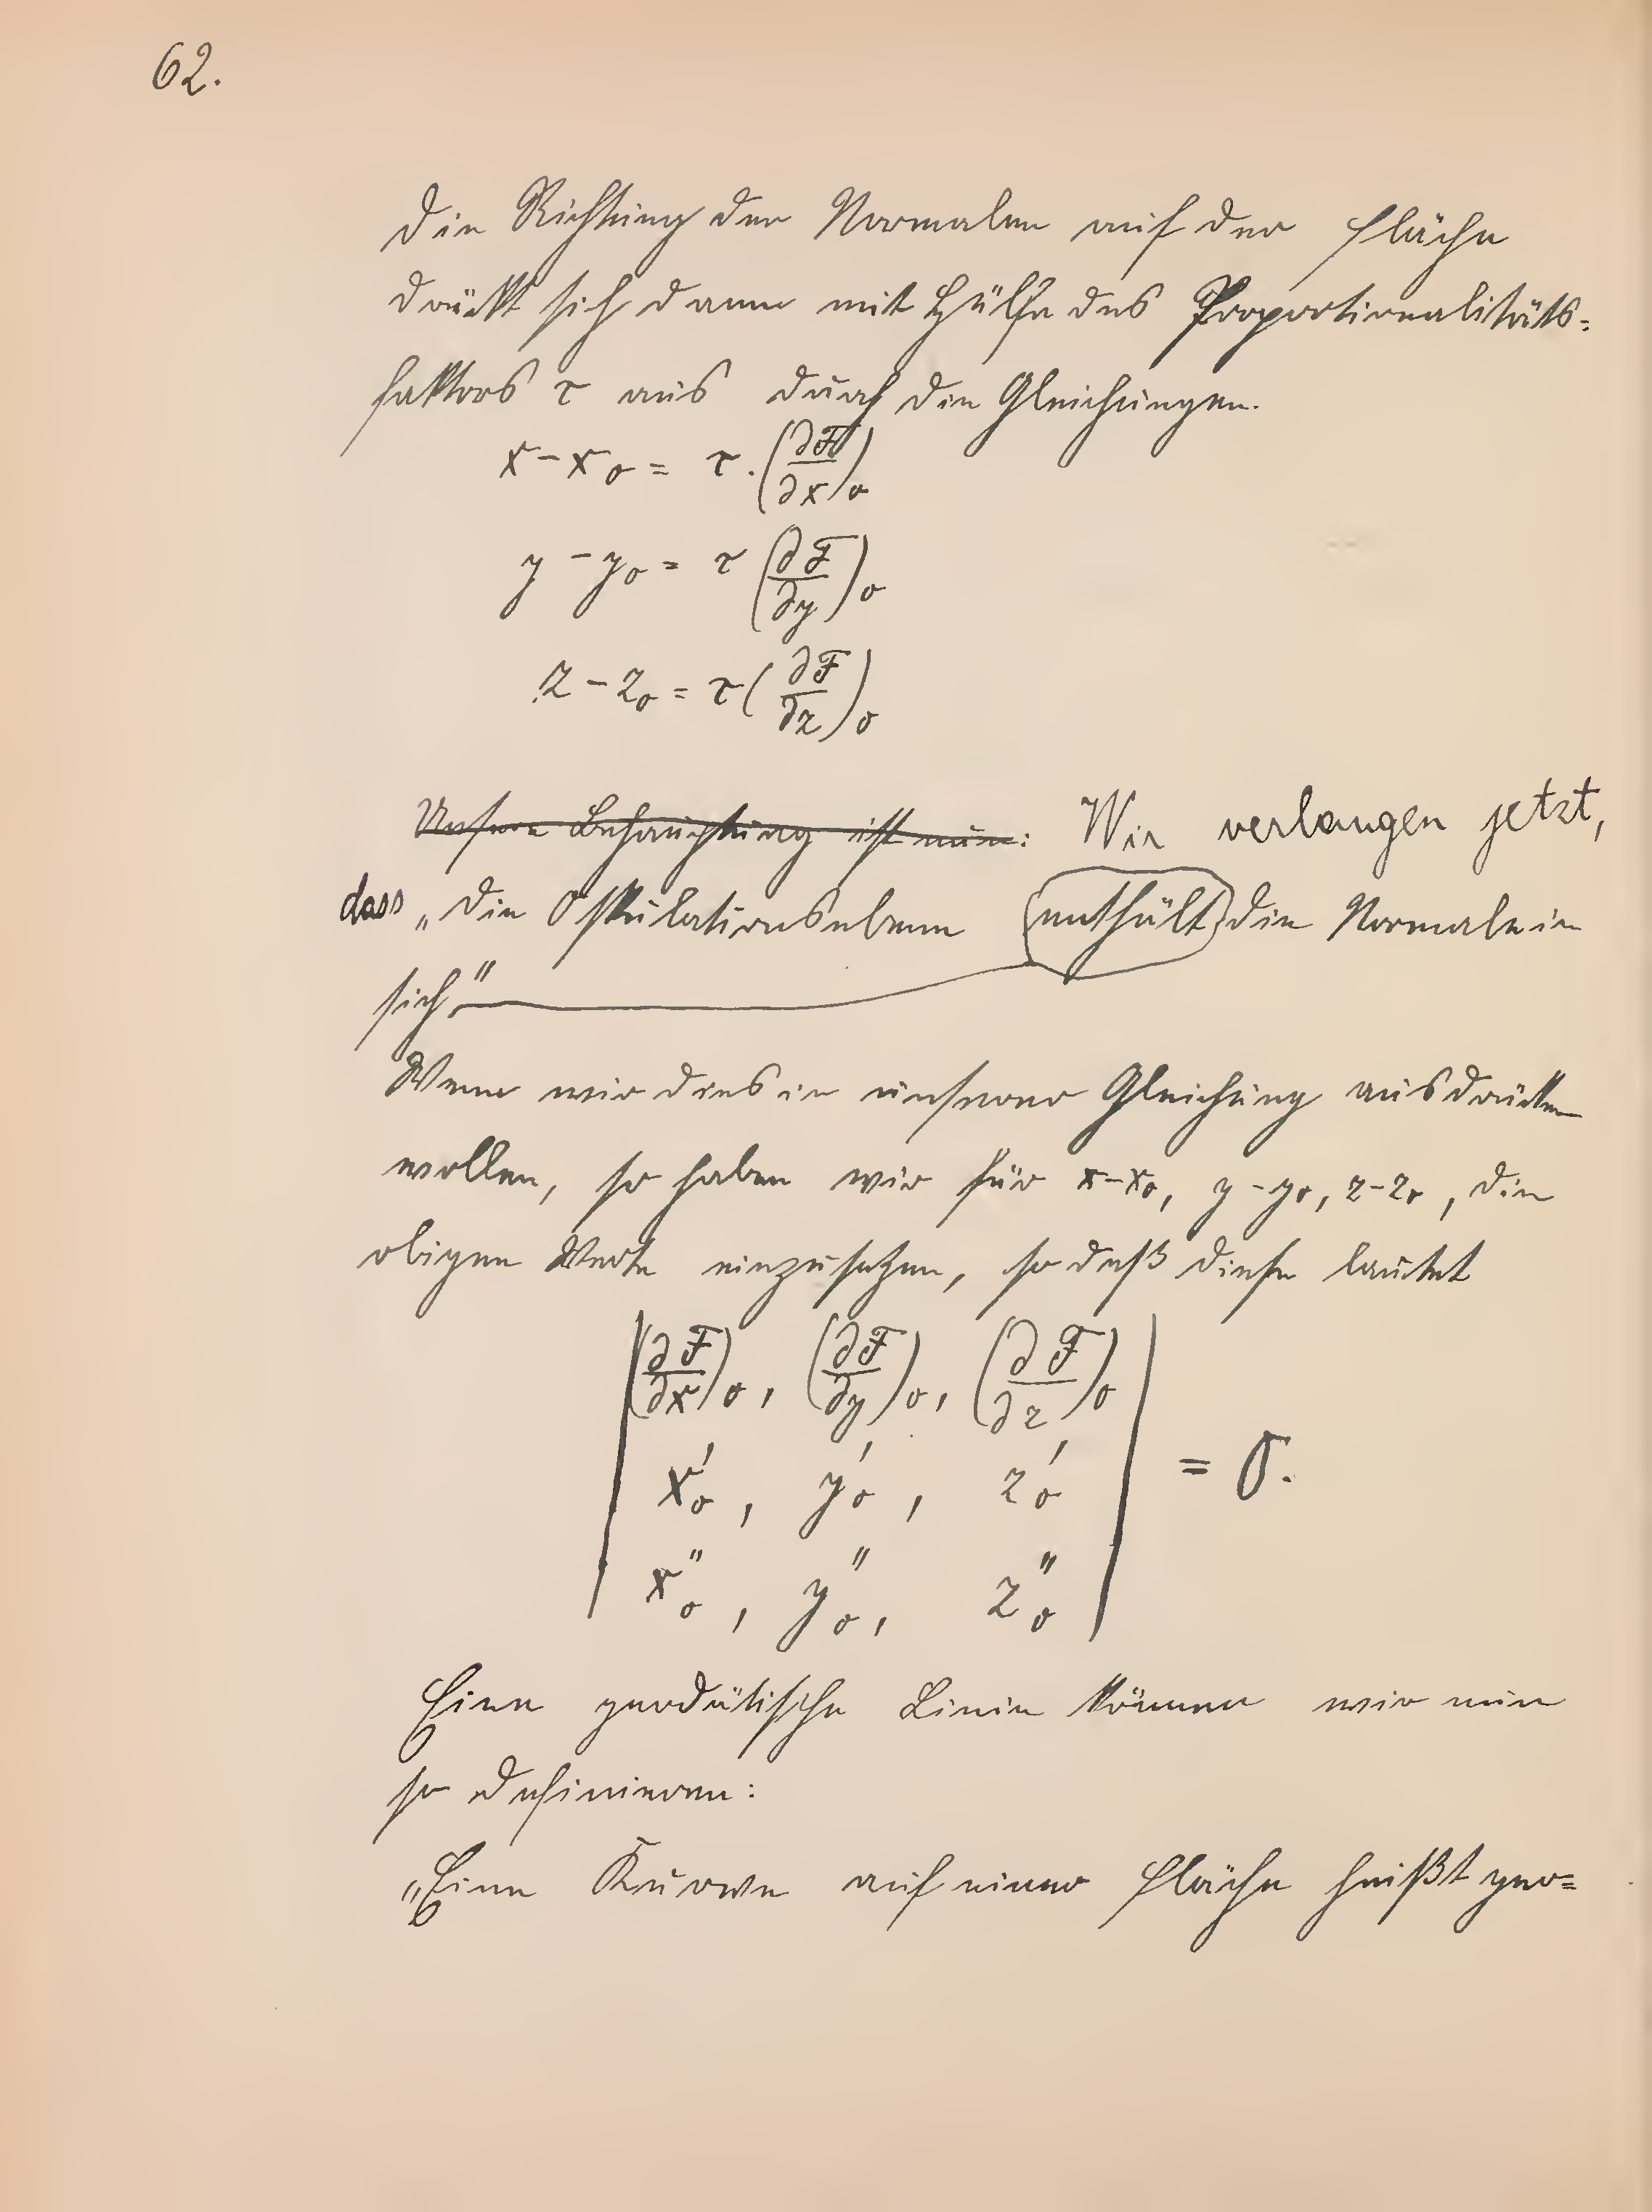 62.
Die Richtung der Normalen auf der Fläche
drückt sich dann mit Hülfe des Proportionalitäts=
faktors τ aus durch die Gleichungen.
x - x₀ = τ · (∂F/∂x)₀
y - y₀ = τ (∂F/∂y)₀
z - z₀ = τ (∂F/∂z)₀
Unsere Behauptung ist nun: Wir verlangen jetzt,
dass „die Oskulationsebene enthält die Normale in
sich"
Wenn wir dies in unserer Gleichung ausdrücken
wollen, so haben wir für x-x₀, y-y₀, z-z₀, die
obigen Werte einzusetzen, so daß diese lautet
| (∂F/∂x)₀, (∂F/∂y)₀, (∂F/∂z)₀ |
| x₀′, y₀′, z₀′ | = 0.
| x₀″, y₀″, z₀″ |
Eine geodätische Linie können wir nun
so definieren:
„Eine Kurve auf einer Fläche heißt geo=